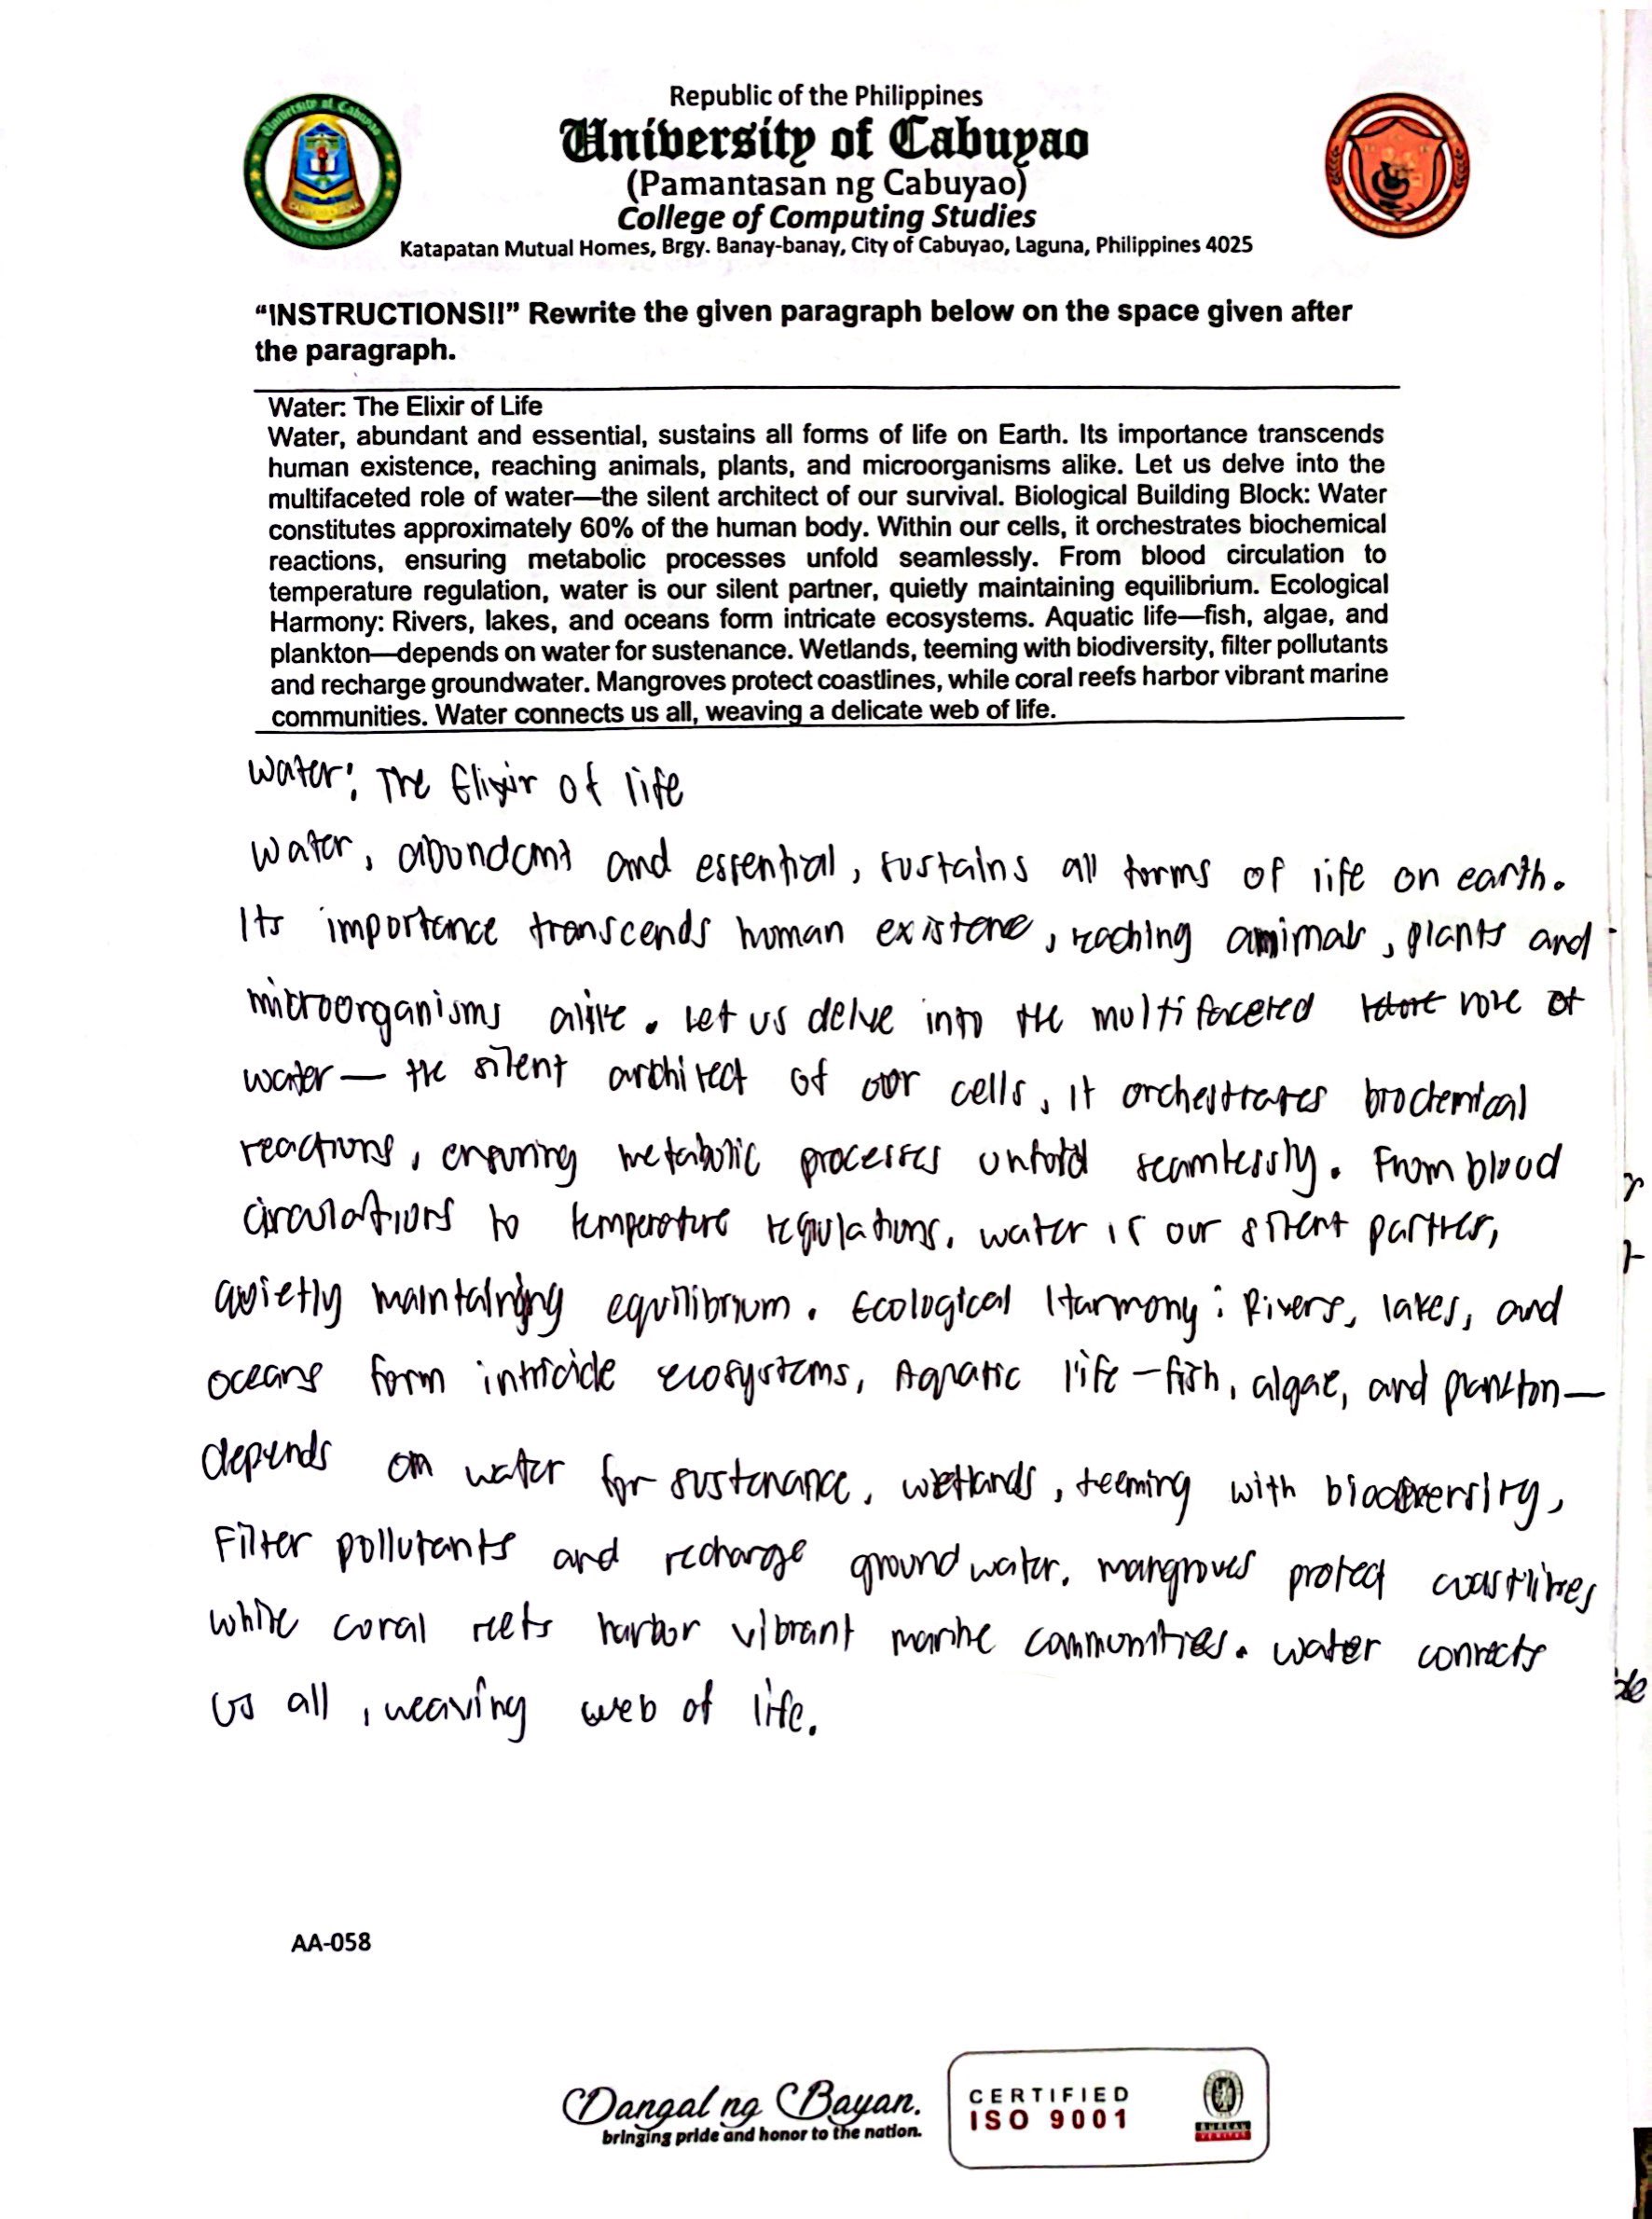 Republic of the Philippines
University of Cabuyao
(Pamantasan ng Cabuyao)
College of Computing Studies
Katapatan Mutual Homes, Brgy. Banay-banay, City of Cabuyao, Laguna, Philippines 4025
“INSTRUCTIONS!!” Rewrite the given paragraph below on the space given after
the paragraph.
Water: The Elixir of Life
Water, abundant and essential, sustains all forms of life on Earth. Its importance transcends
human existence, reaching animals, plants, and microorganisms alike. Let us delve into the
multifaceted role of water—the silent architect of our survival. Biological Building Block: Water
constitutes approximately 60% of the human body. Within our cells, it orchestrates biochemical
reactions, ensuring metabolic processes unfold seamlessly. From blood circulation to
temperature regulation, water is our silent partner, quietly maintaining equilibrium. Ecological
Harmony: Rivers, lakes, and oceans form intricate ecosystems. Aquatic life—fish, algae, and
plankton—depends on water for sustenance. Wetlands, teeming with biodiversity, filter pollutants
and recharge groundwater. Mangroves protect coastlines, while coral reefs harbor vibrant marine
communities. Water connects us all, weaving a delicate web of life.
Water: The Elixir of life
Water, abundant and essential, sustains all forms of life on earth.
Its importance transcends human existence, reaching animals, plants and
microorganisms alike. Let us delve into the multifaceted role of
water— the silent architect of our cells, it orchestrates biochemical
reactions, ensuring metabolic processes unfold seamlessly. From blood
circulations to temperature regulations, water is our silent partner,
quietly maintaining equilibrium. Ecological Harmony: Rivers, lakes, and
oceans form intricide ecosystems, Aquatic life—fish, algae, and plankton—
depends on water for sustenance, wetlands, teeming with biodiversity,
Filter pollutants and recharge groundwater. mangroves protect coastlines
while coral reefs harbor vibrant marine communities. water connects
us all, weaving web of life.
AA-058
Dangal ng Bayan.
bringing pride and honor to the nation.
CERTIFIED
ISO 9001
BUREAU
VERITAS